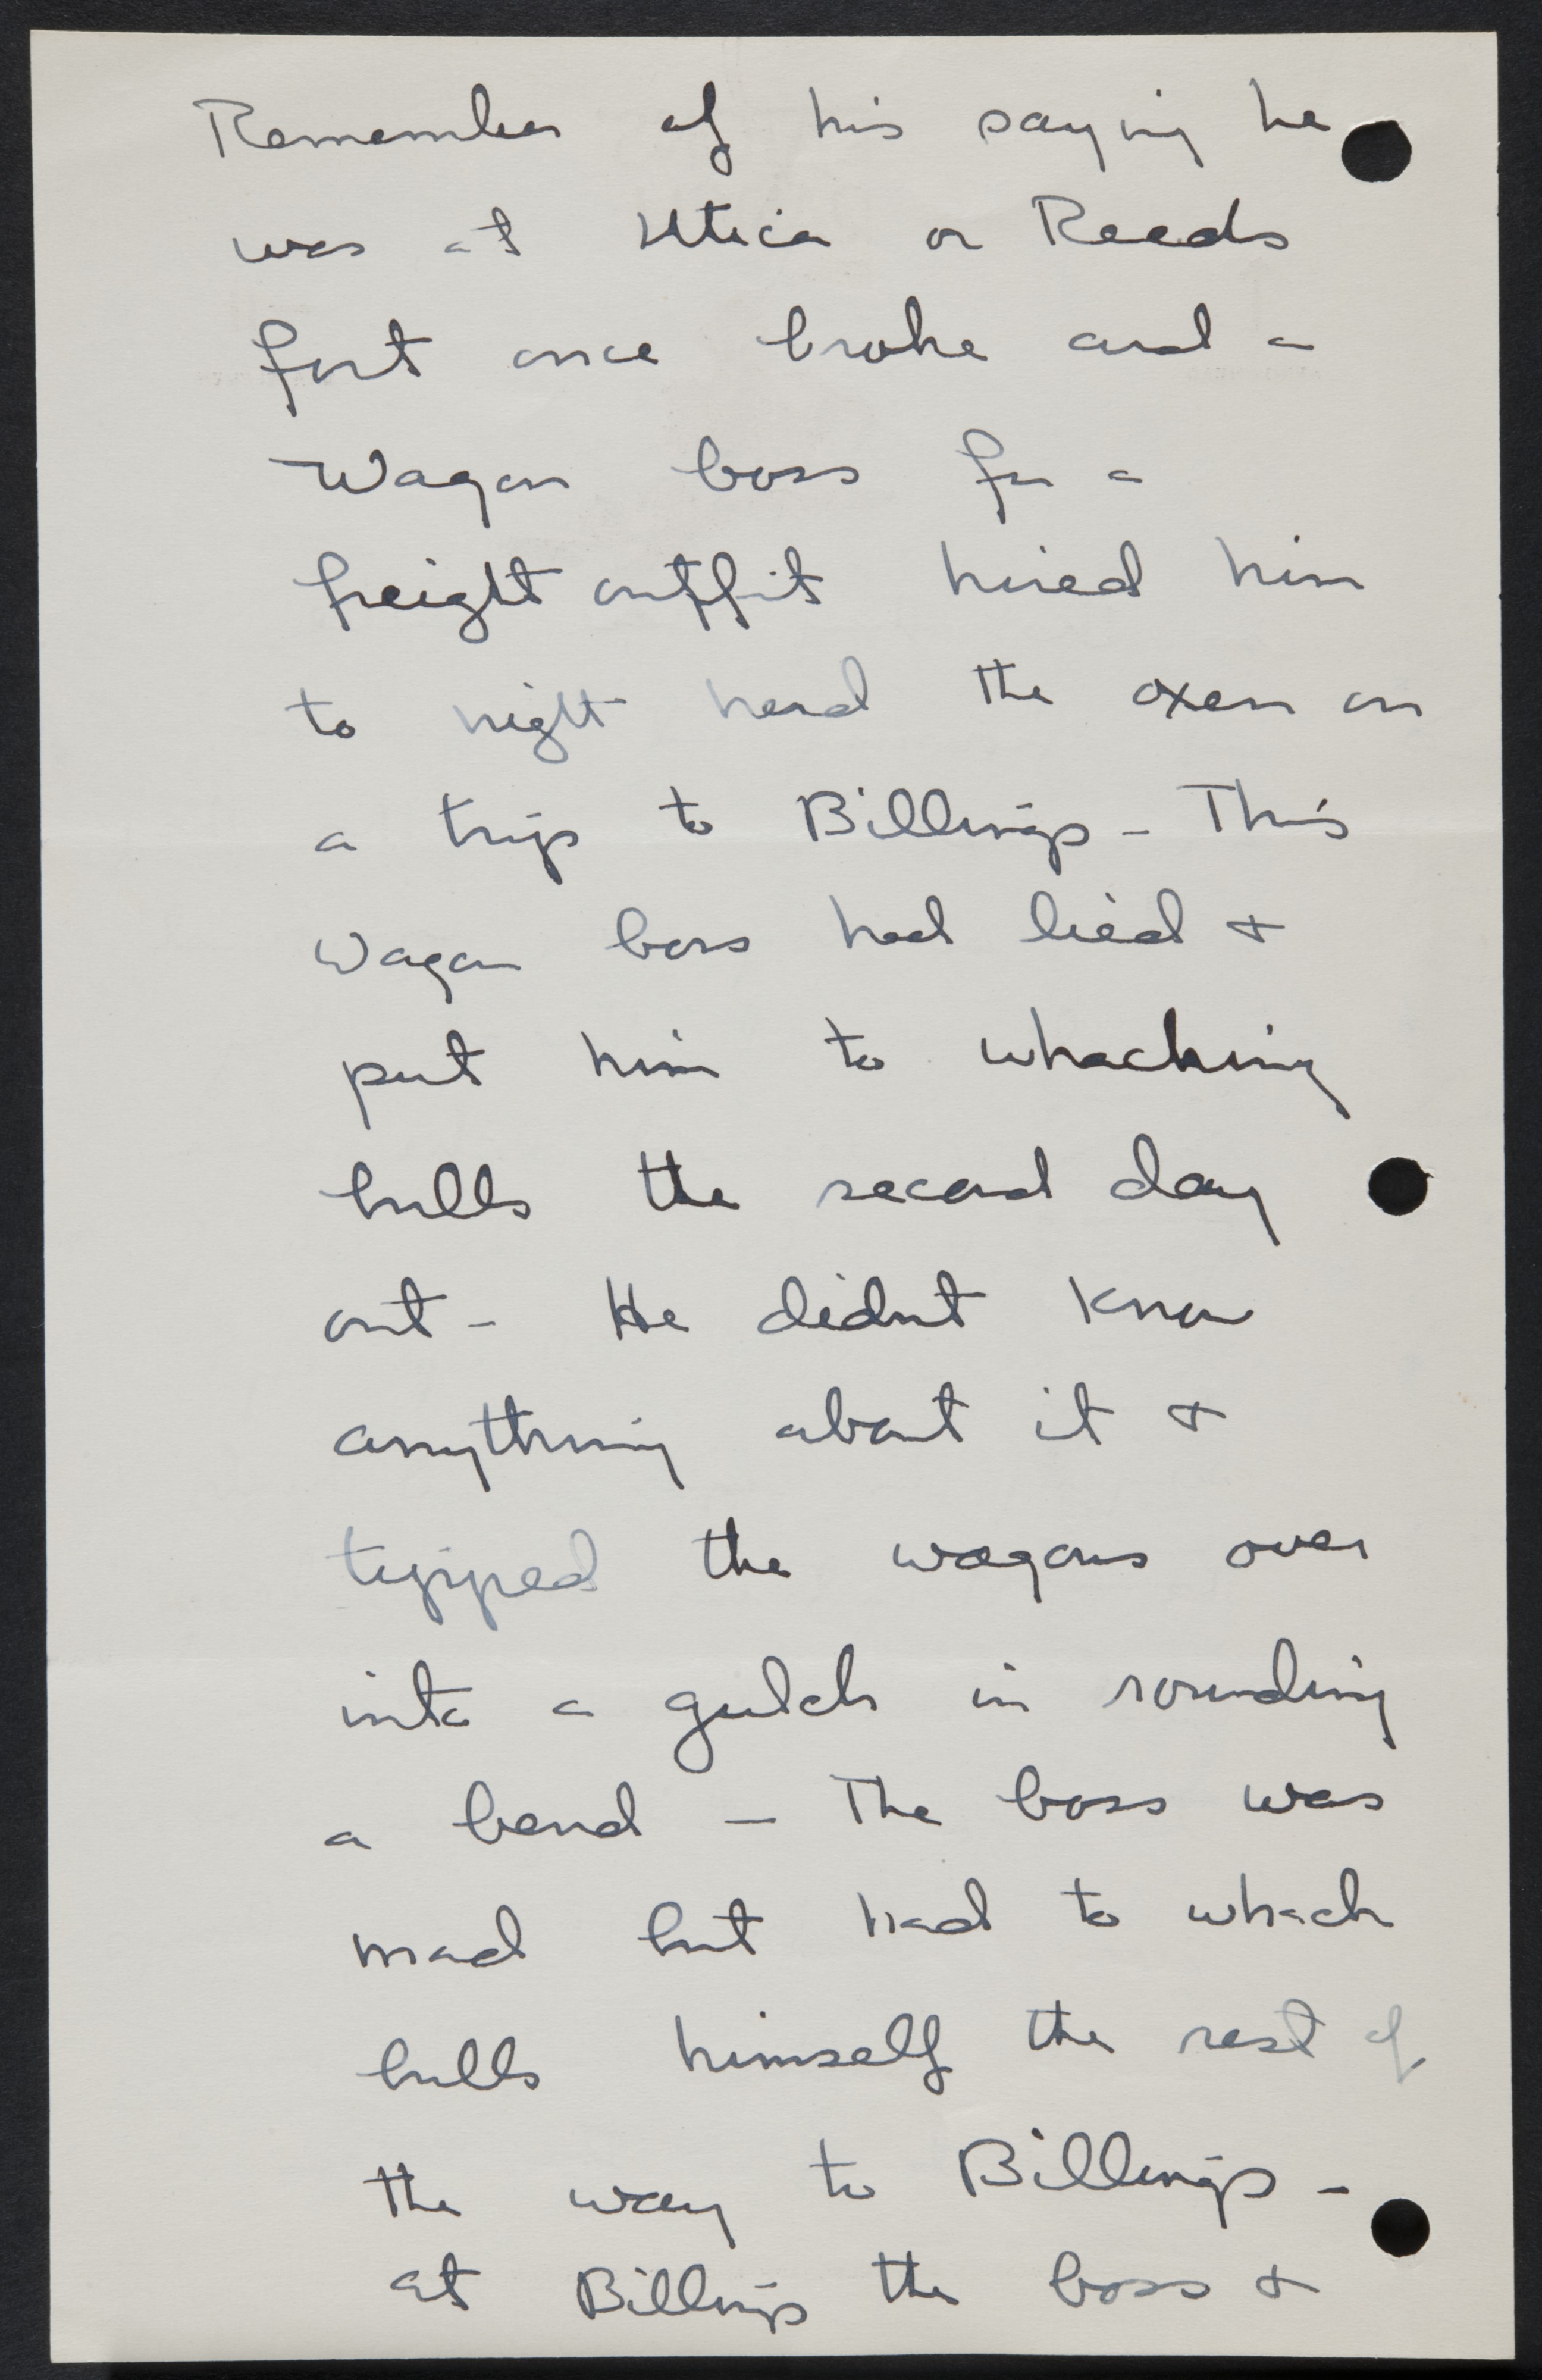 Remember of his saying he
was at Utica or Reeds
fort once broke and a
Wagon boss for a
freight outfit hired him
to night herd the oxen on
a trip to Billings - This
Wagon boss had lied +
put him to whacking
bulls the second day
out - He didnt know
anything about it +
tipped the wagons over
into a gulch in rounding
a bend - The boss was
mad but had to whack
bulls himself the rest of
the way to Billings -
at Billings the boss +